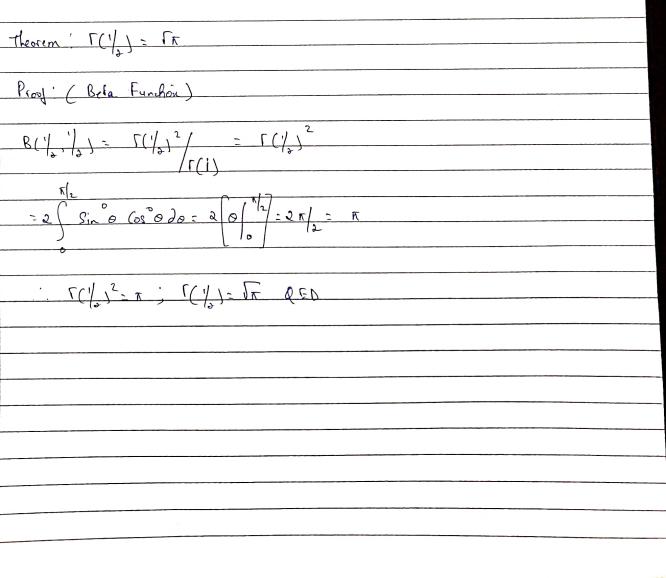 Theorem: Γ(1/2) = √π
Proof: (Beta Function)
B(1/2, 1/2) = Γ(1/2)²/Γ(1) = Γ(1/2)²
= 2 ∫₀^{π/2} Sin⁰θ Cos⁰θ dθ = 2[θ|₀^{π/2}] = 2π/2 = π
∴ Γ(1/2)² = π ; Γ(1/2) = √π QED